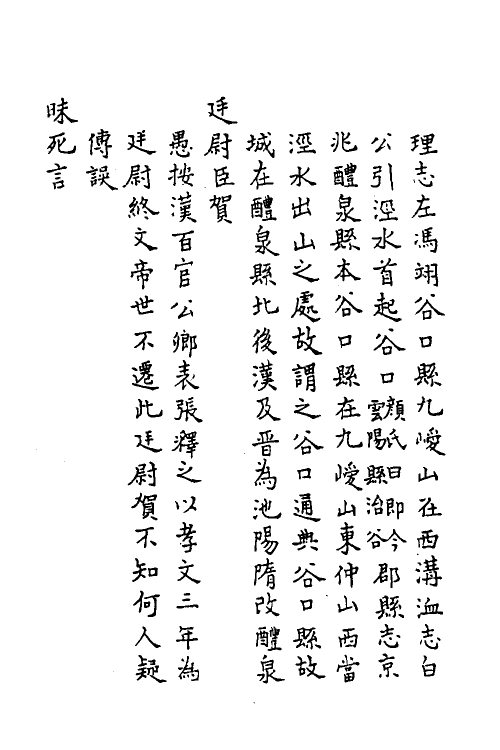 理志左馮翊谷口縣九嵕山在西溝洫志白
公引涇水首起谷口顏氏曰即今雲陽縣治谷郡縣志京
兆醴泉縣本谷口縣在九嵕山東仲山西當
涇水出山之處故謂之谷口通典谷口縣故
城在醴泉縣北後漢及晉為池陽隋改醴泉
廷尉臣賀
愚按漢百官公卿表張釋之以孝文三年為
廷尉終文帝世不遷此廷尉賀不知何人疑
傳誤
昧死言